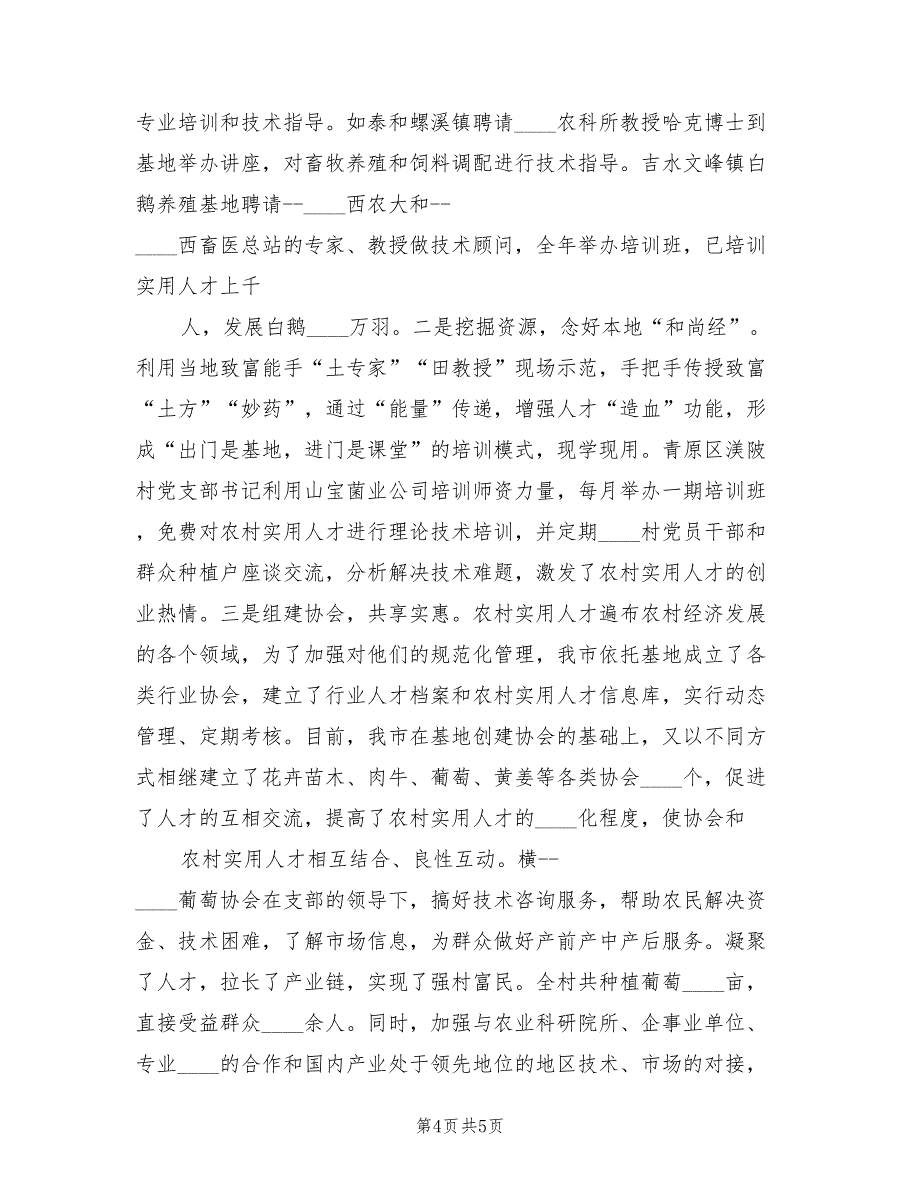 专业培训和技术指导。如泰和螺溪镇聘请____农科所教授哈克博士到
基地举办讲座，对畜牧养殖和饲料调配进行技术指导。吉水文峰镇白
鹅养殖基地聘请--____西农大和--
____西畜医总站的专家、教授做技术顾问，全年举办培训班，已培训
实用人才上千
人，发展白鹅____万羽。二是挖掘资源，念好本地“和尚经”。
利用当地致富能手“土专家”“田教授”现场示范，手把手传授致富
“土方”“妙药”，通过“能量”传递，增强人才“造血”功能，形
成“出门是基地，进门是课堂”的培训模式，现学现用。青原区渼陂
村党支部书记利用山宝菌业公司培训师资力量，每月举办一期培训班
，免费对农村实用人才进行理论技术培训，并定期____村党员干部和
群众种植户座谈交流，分析解决技术难题，激发了农村实用人才的创
业热情。三是组建协会，共享实惠。农村实用人才遍布农村经济发展
的各个领域，为了加强对他们的规范化管理，我市依托基地成立了各
类行业协会，建立了行业人才档案和农村实用人才信息库，实行动态
管理、定期考核。目前，我市在基地创建协会的基础上，又以不同方
式相继建立了花卉苗木、肉牛、葡萄、黄姜等各类协会____个，促进
了人才的互相交流，提高了农村实用人才的____化程度，使协会和
农村实用人才相互结合、良性互动。横--
____葡萄协会在支部的领导下，搞好技术咨询服务，帮助农民解决资
金、技术困难，了解市场信息，为群众做好产前产中产后服务。凝聚
了人才，拉长了产业链，实现了强村富民。全村共种植葡萄____亩，
直接受益群众____余人。同时，加强与农业科研院所、企事业单位、
专业____的合作和国内产业处于领先地位的地区技术、市场的对接，
第4页共5页